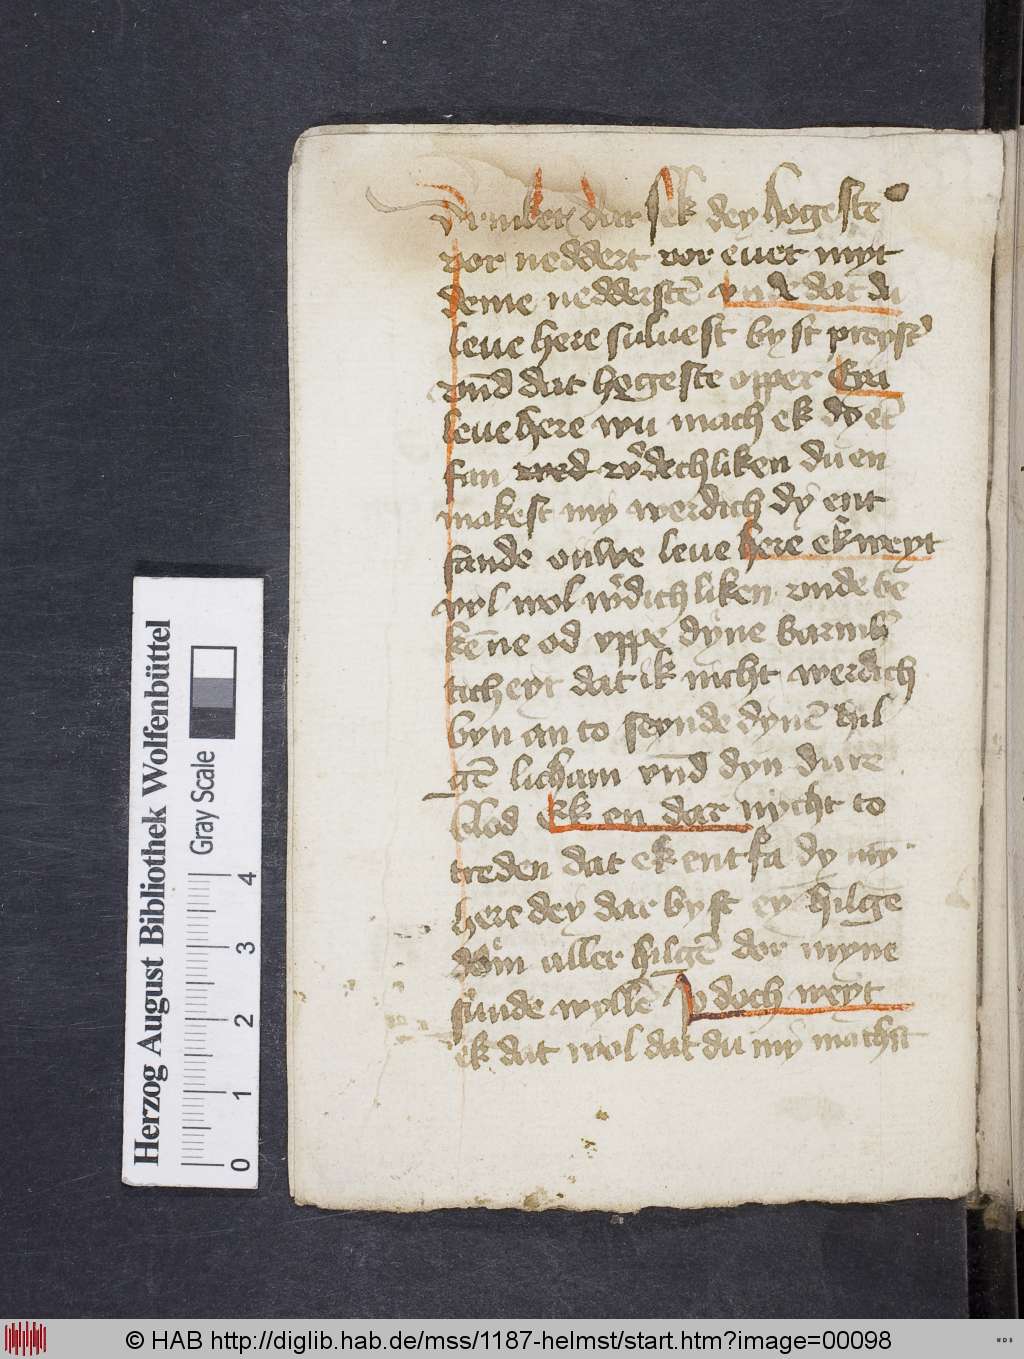 dar sek dey hogeste
vor neddert vor euet myt
deme nedderstē vnde dat du
leue here suluest byst preyst'
vnd dat hogeste opper Eya
leue here wu mach ek dy ēt
fan du en
makest my werdich dy ent
fande ouwe leue here ek weyt
vyl wol w'dichliken vnde be
kēne od vppe dyne barmh'
ticheyt dat ik nicht werdich
byn an to seynde dynē hil
gē licham vnd dyn dure
blod Ek en dar nycht to
treden dat ek entfa dy my
here dey dar byst ey hilgē
dom aller hilgē dor myne
sunde wyllē Jo doch weyt
ek dat wol dat du my machst
Herzog August Bibliothek Wolfenbüttel
Gray Scale
0 1 2 3 4
© HAB http://diglib.hab.de/mss/1187-helmst/start.htm?image=00098